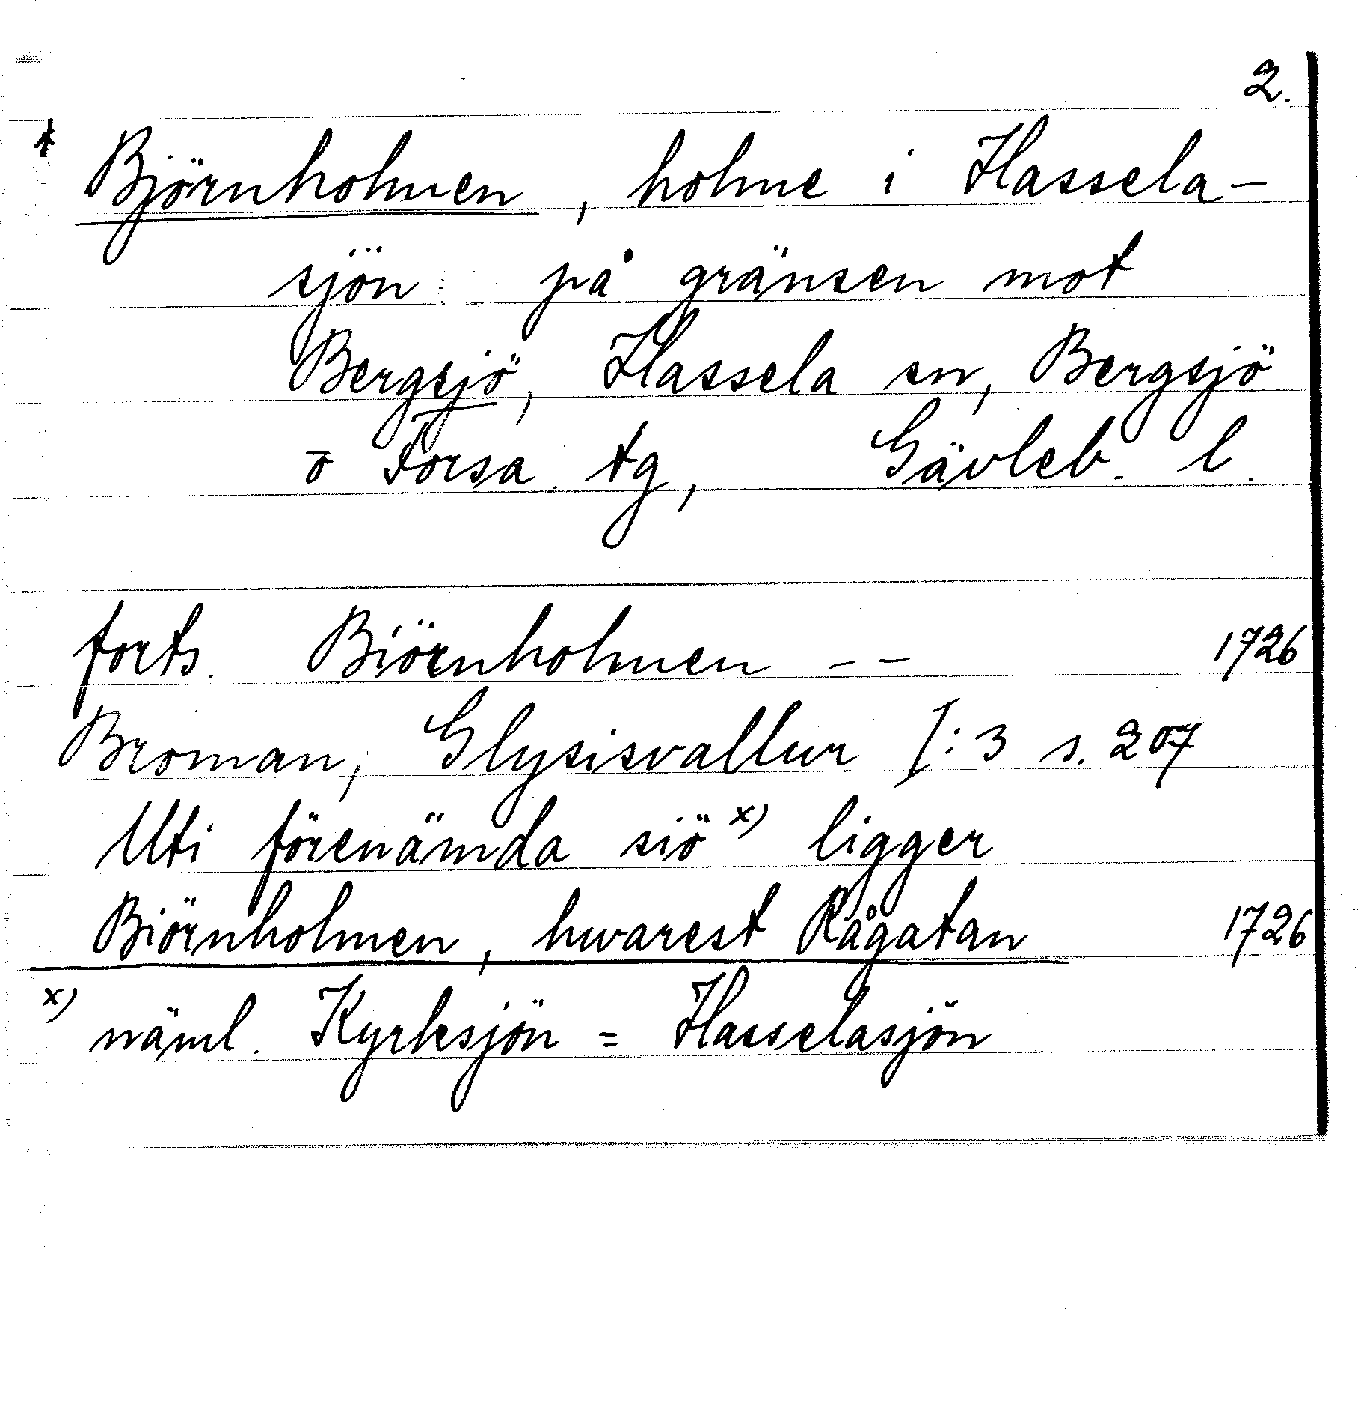 2.
Björnholmen, holme i Hassela-
sjön på gränsen mot
Bergsjö, Hassela sn, Bergsjö
o Forsa tg, Gävleb. l.
forts. Biörnholmen -- 1726
Broman, Glysisvallur I:3 s. 207
Uti förenämda siö x) ligger
Biörnholmen, hwarest Rågatan 1726
x) näml. Kyrksjön = Hasselasjön